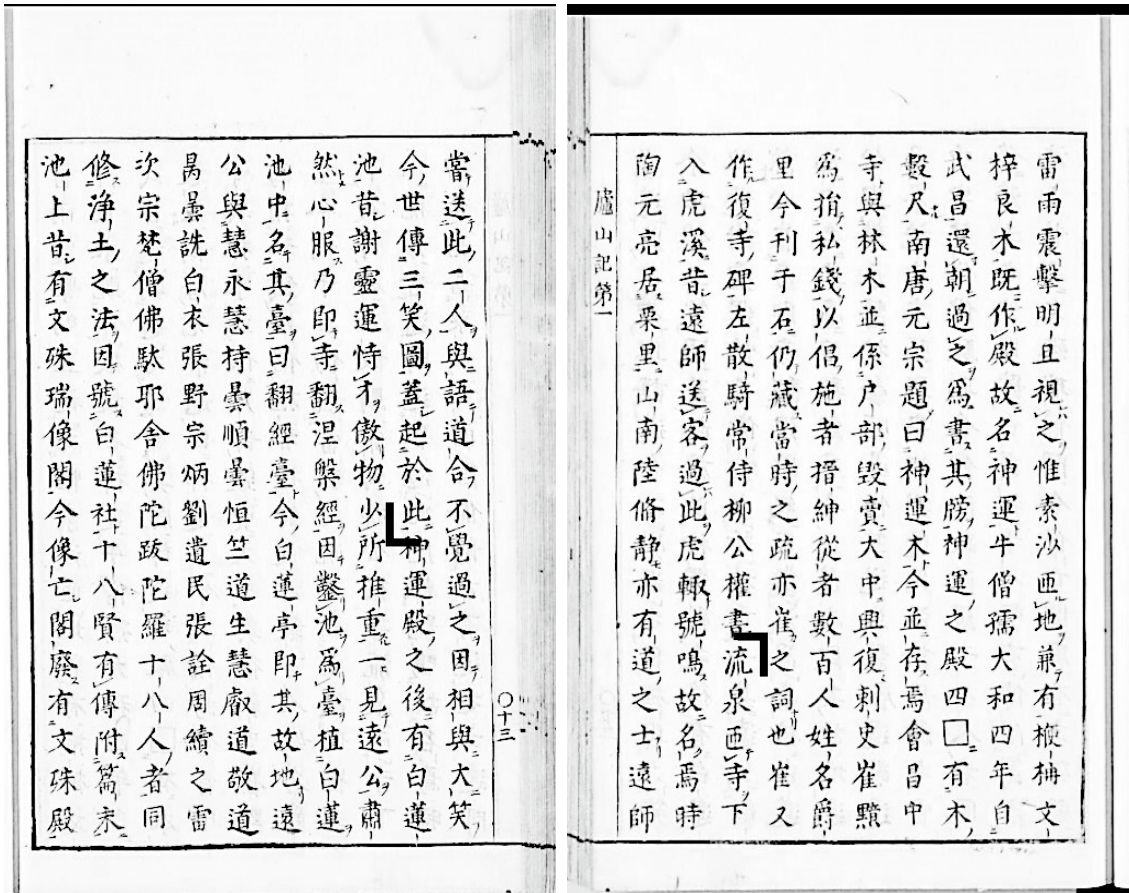 雷雨震擊明且視之惟素沙匝地兼有楩柟文
梓良木既作殿故名神運牛僧孺大和四年自
武昌還朝過之爲書其牓神運之殿四□有木
數尺南唐元宗題曰神運木今並存焉會昌中
寺與林木並係户部毀賣大中興復刺史崔黯
爲捐私錢以倡施者搢紳從者數百人姓名爵
里今刊于石仍藏當時之疏亦崔之詞也崔又
作復寺碑左散騎常侍柳公權書流泉匝寺下
入虎溪昔遠師送客過此虎輙號鳴故名焉時
陶元亮居栗里山南陸脩静亦有道之士遠師
廬山記第一
〇十三
當送此二人與語道合不覺過之因相與大笑
今世傳三笑圖蓋起於此神運殿之後有白蓮
池昔謝靈運恃才傲物少所推重一見遠公肅
然心服乃即寺翻涅槃經因鑿池爲臺植白蓮
池中名其臺曰翻經臺今白蓮亭即其故地遠
公與慧永慧持曇順曇恒竺道生慧叡道敬道
昺曇詵白衣張野宗炳劉遺民張詮周續之雷
次宗梵僧佛馱耶舍佛陀跋陀羅十八人者同
修浄土之法因號白蓮社十八賢有傳附篇末
池上昔有文殊瑞像閣今像亡閣廢有文殊殿